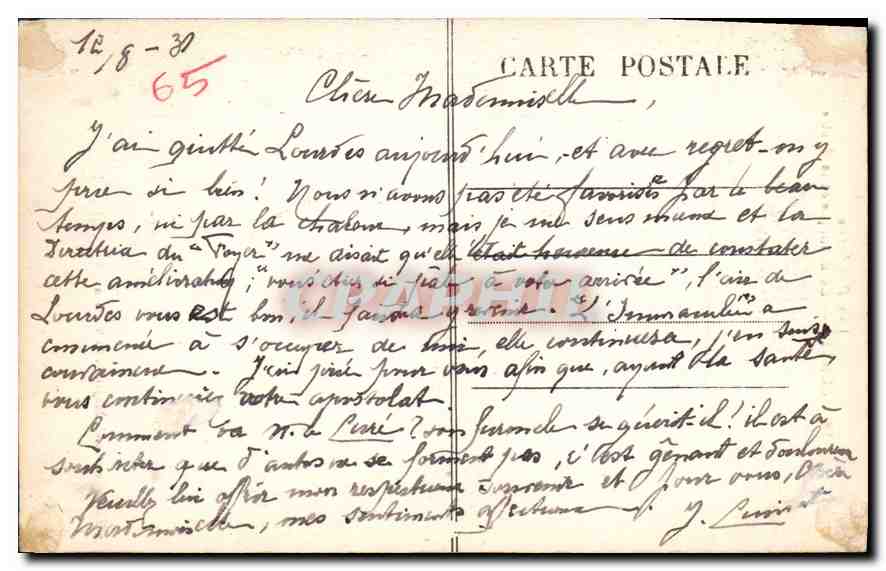 12/8-38
65
CARTE POSTALE
Chère Mademoiselle,
J'ai quitté Lourdes aujourd'hui, et avec regret - on y
prie si bien! Nous n'avons pas été favorisés par le beau
temps, ni par la chaleur, mais je me sens mieux et la
Directrice du "Foyer" me disait qu'elle était heureuse de constater
cette amélioration; "vous étiez si pâle à votre arrivée", l'air de
Lourdes vous est bon, il faudra y revenir. L'Immaculée a
commencé à s'occuper de moi, elle continuera, j'en suis
convaincue. J'ai prié pour vous afin que, ayant la santé,
vous continuiez votre apostolat.
Comment va M. le Curé? son furoncle se guérit-il! il est à
souhaiter que d'autres ne se forment pas, c'est gênant et douloureux
Veuillez lui offrir mon respectueux souvenir et pour vous, Chère
Mademoiselle, mes sentiments affectueux. Y.
CPARAMA